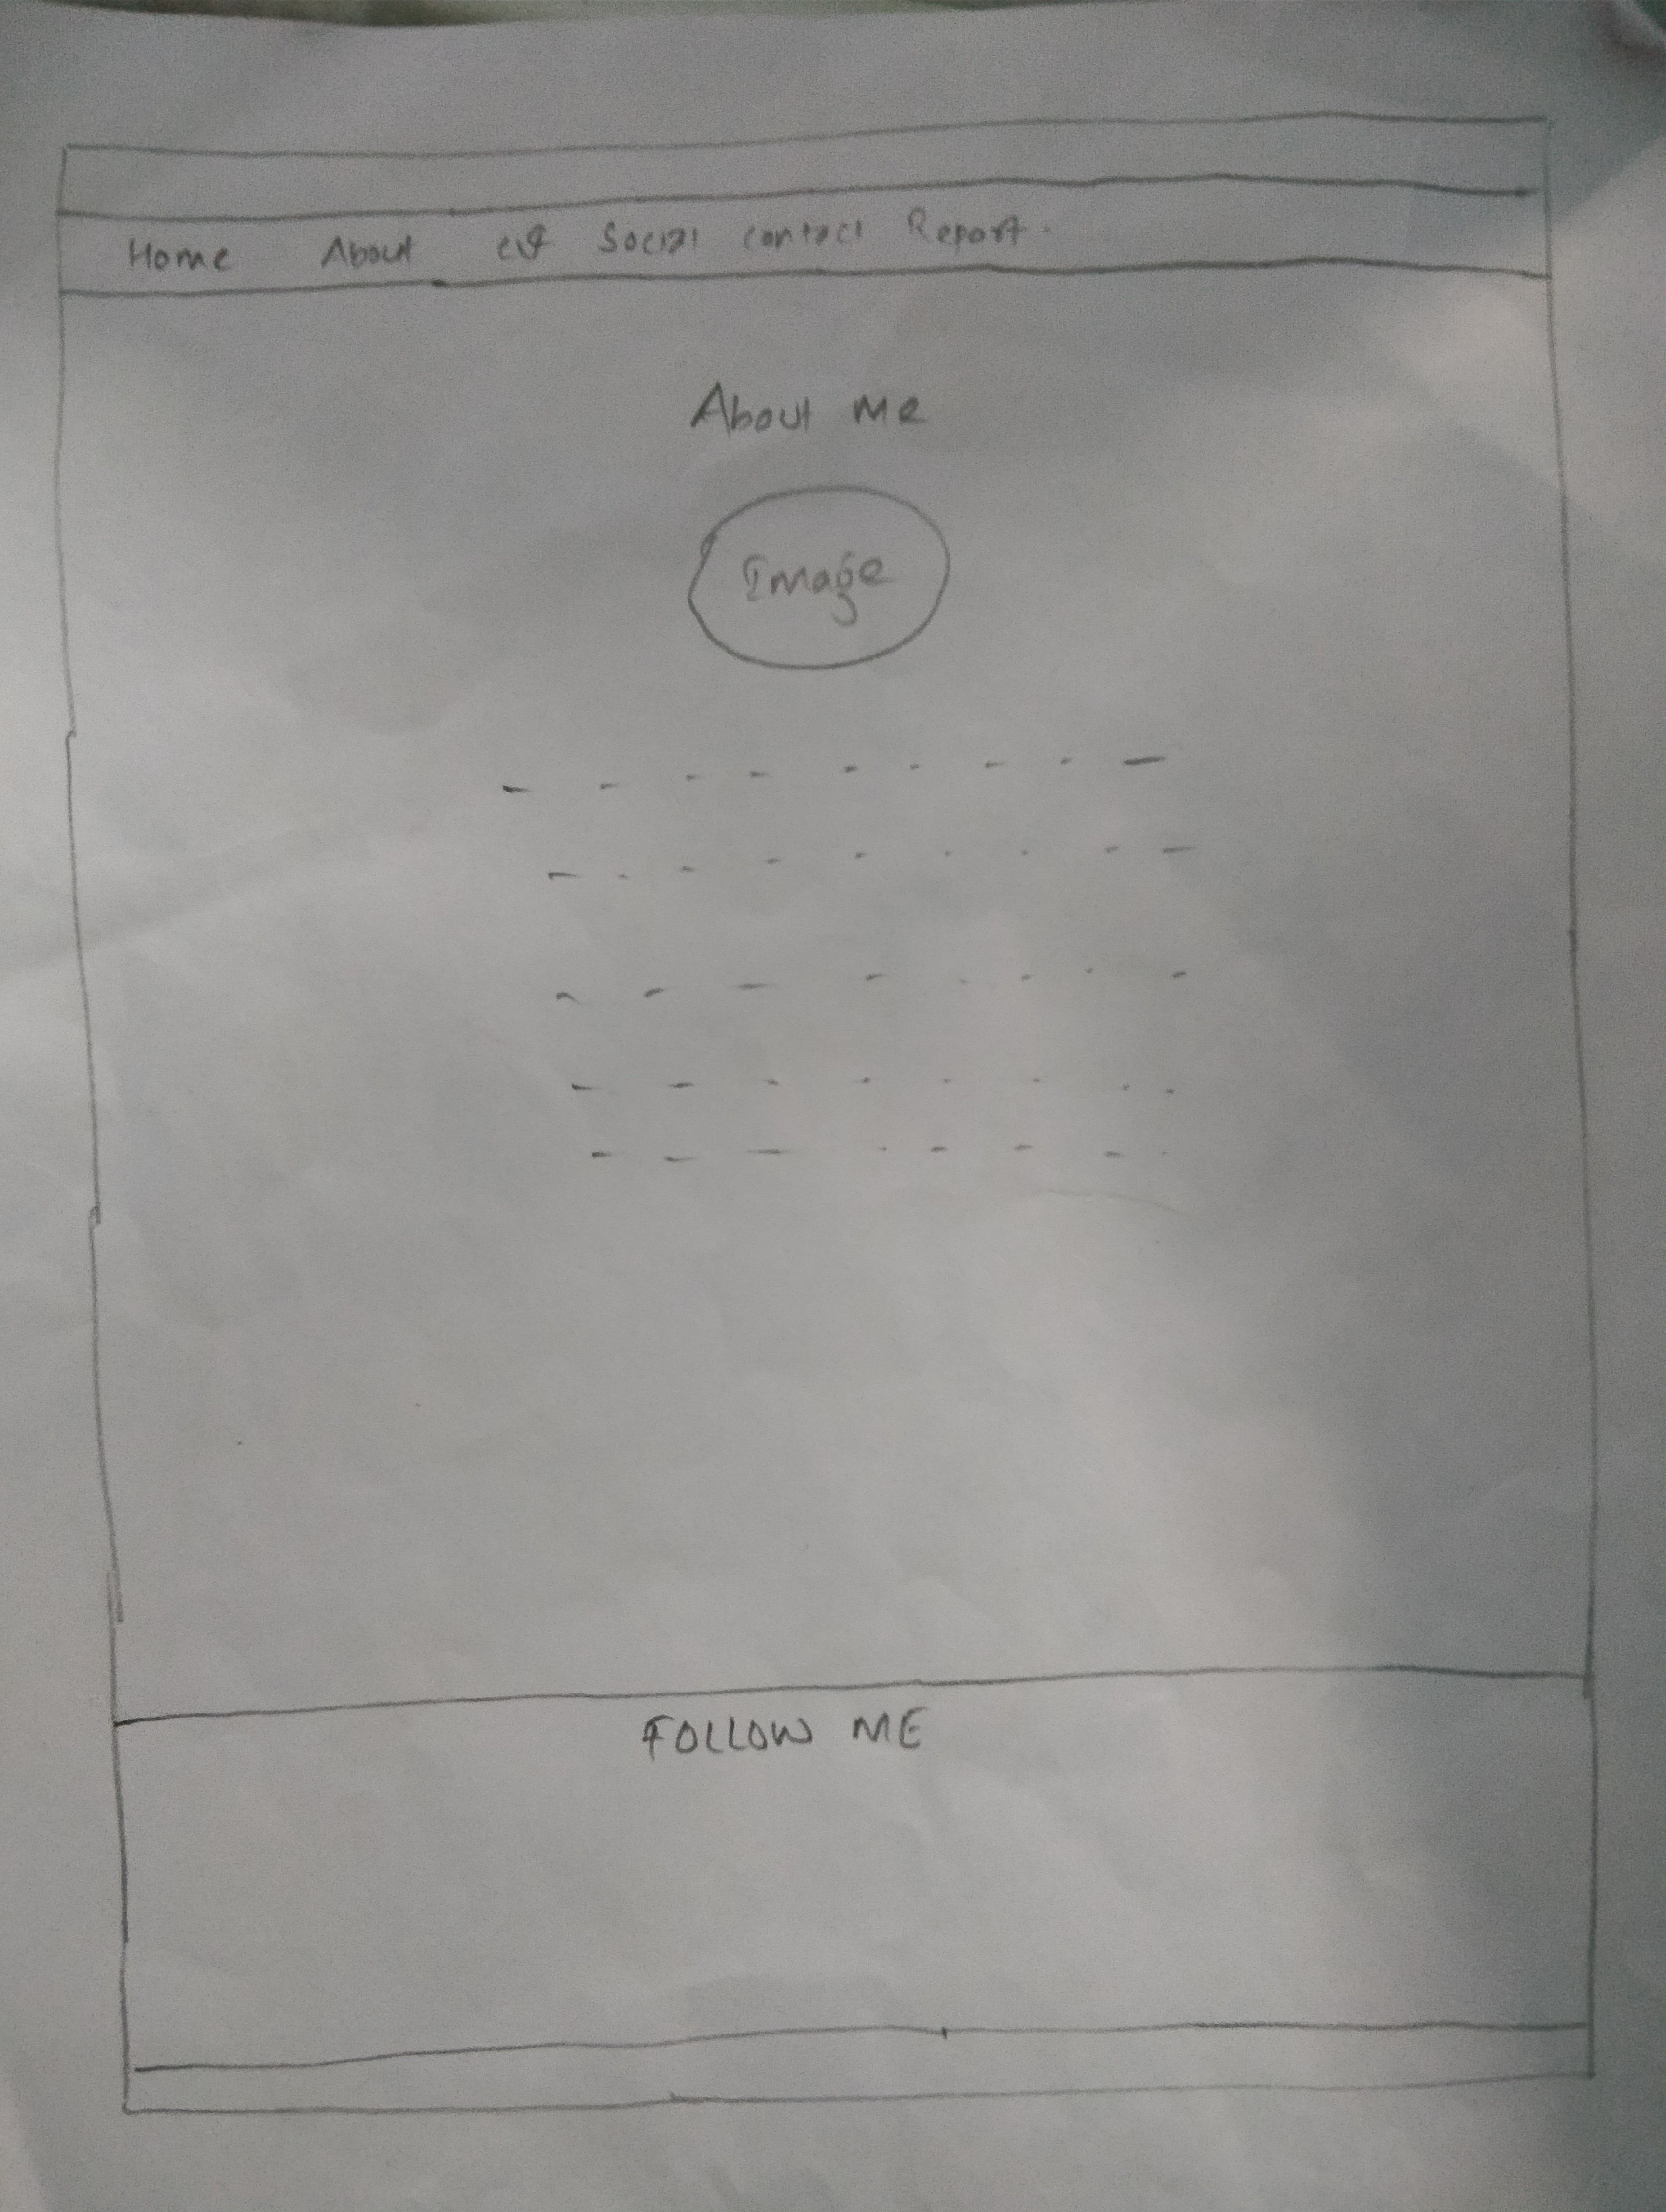 Home About CV Social contact Report.
About Me
Image
FOLLOW ME